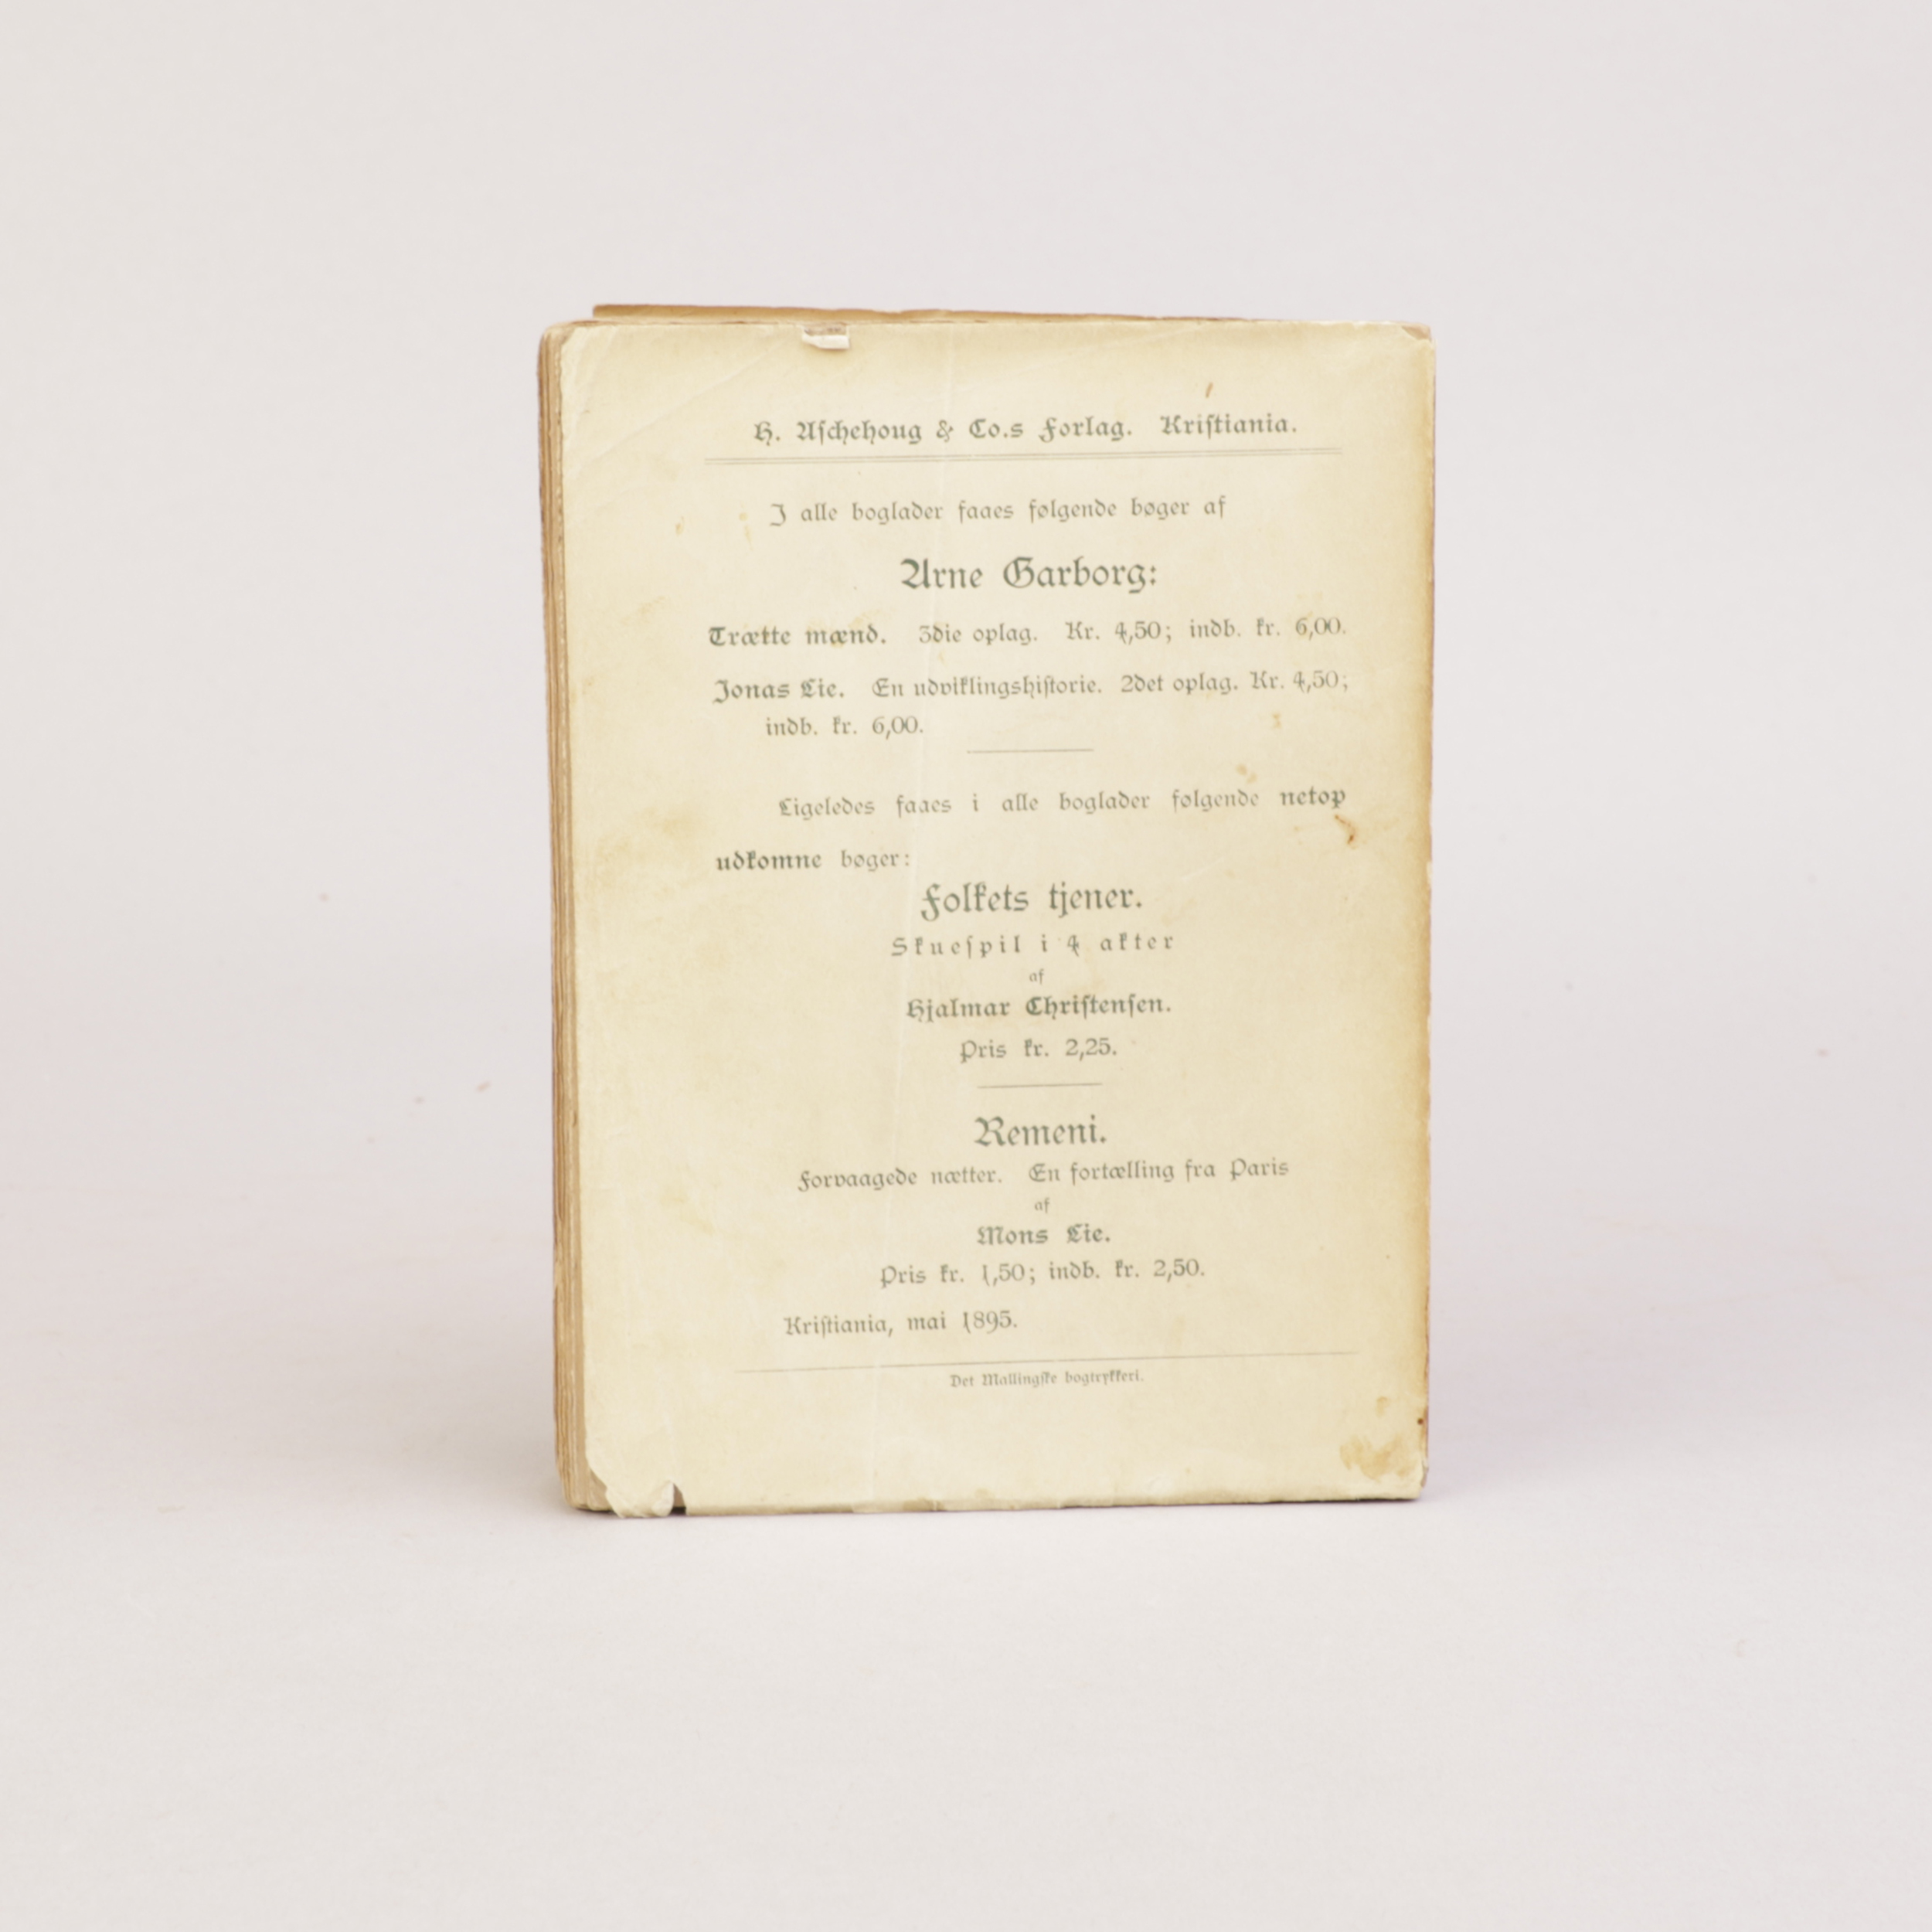 H. Aschehoug & Co.s Forlag. Kristiania.
I alle boglader faaes følgende bøger af
Arne Garborg:
Trætte mænd. 3die oplag. Kr. 4,50; indb. kr. 6,00.
Jonas Lie. En udviklingshistorie. 2det oplag. Kr. 4,50;
indb. kr. 6,00.
Ligeledes faaes i alle boglader følgende netop
udkomne bøger:
Folkets tjener.
Skuespil i 4 akter
af
Hjalmar Christensen.
Pris kr. 2,25.
Remeni.
Forvaagede nætter. En fortælling fra Paris
af
Mons Lie.
Pris kr. 1,50; indb. kr. 2,50.
Kristiania, mai 1895.
Det Mallingske bogtrykkeri.